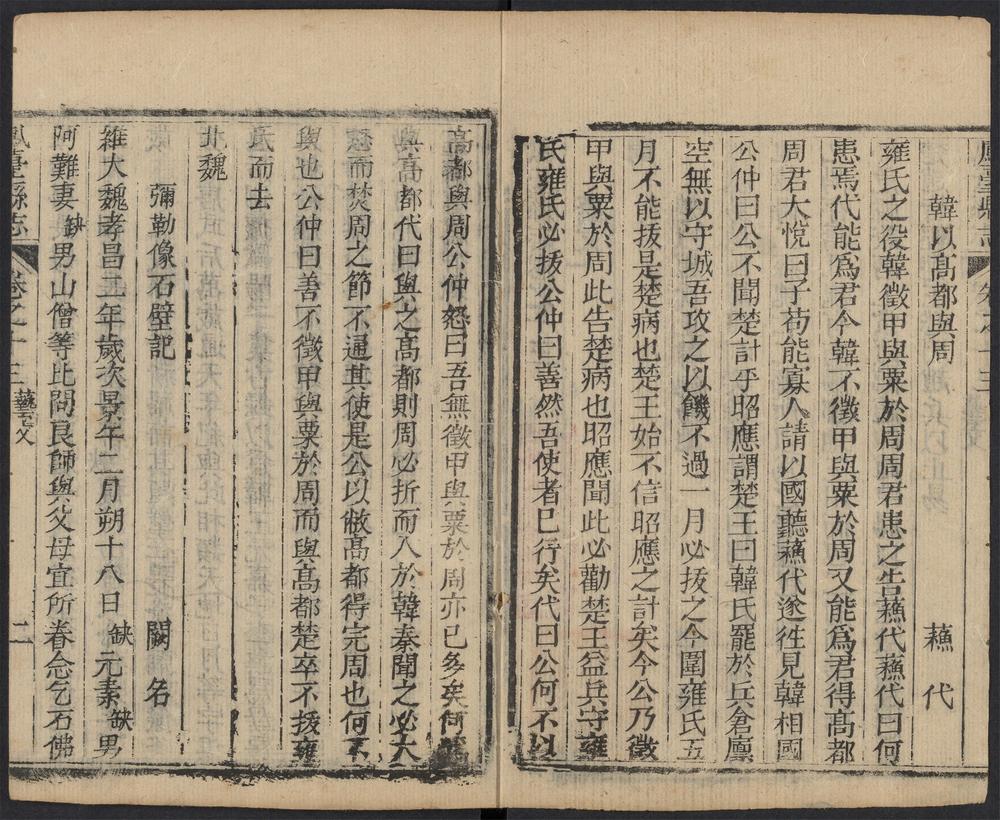 鳳臺縣志 卷之十三
韓以髙都與周 蘓代
雍氏之役韓徵甲與粟於周周君患之告蘓代蘓代曰何
患焉代能爲君令韓不徵甲與粟於周又能爲君得髙都
周君大悅曰子苟能寡人請以國聽蘓代遂徃見韓相國
公仲曰公不聞楚計乎昭應謂楚王曰韓氏罷於兵倉廩
空無以守城吾攻之以饑不過一月必拔之今圍雍氏五
月不能拔是楚病也楚王始不信昭應之計矣今公乃徵
甲與粟於周此告楚病也昭應聞此必勸楚王益兵守雍
氏雍氏必拔公仲曰善然吾使者已行矣代曰公何不以
髙都與周公仲怒曰吾無徵甲與粟於周亦已多矣何爲
與髙都代曰與之髙都則周必折而入於韓秦聞之必大
怒而焚周之節不通其使是公以敝髙都得完周也何不
與也公仲曰善不徵甲與粟於周而與髙都楚卒不拔雍
氏而去
北魏
彌勒像石壁記 闕名
維大魏孝昌二年歲次景午二月朔十八日缺元素缺男
阿難妻缺男山僧等比問良師與父母宜所眷念乞石佛
鳳臺縣志 卷之十三 藝文 二